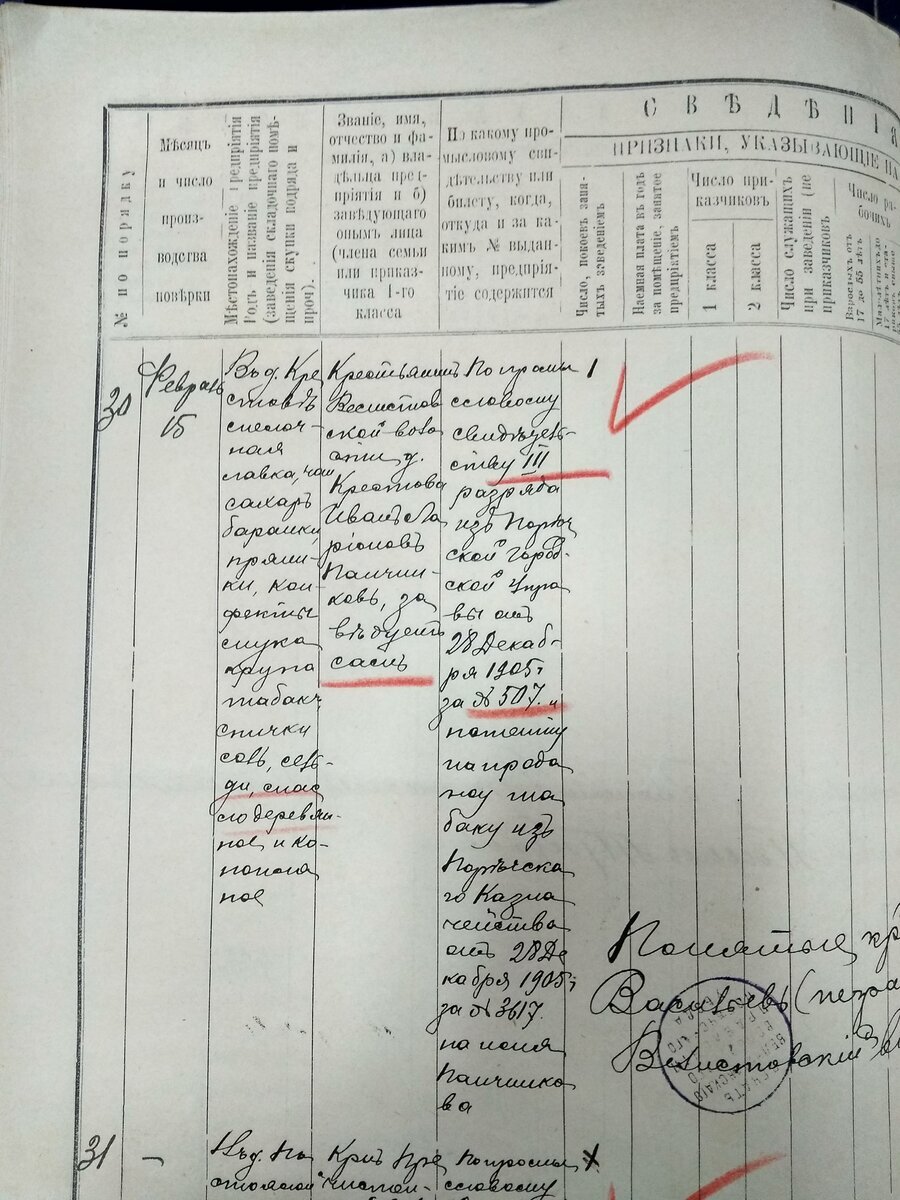 СВѢДѢНІЯ
ПРИЗНАКИ, УКАЗЫВАЮЩІЕ НА
№ по порядку
Мѣсяцъ
и число
произ-
водства
повѣрки
Мѣстонахожденіе предпріятія
родъ и названіе предпріятія
(заведенія складочнаго помѣ-
щенія скупки подряда и
проч).
Званіе, имя,
отчество и фа-
милія, а) вла-
дѣльца пред-
пріятія и б)
завѣдующаго
онымъ лица
(члена семьи
или приказ-
чика 1-го
класса
По какому про-
мысловому сви-
дѣтельству или
билету, когда,
откуда и за ка-
кимъ № выдан-
ному, предпрія-
тіе содержится
Число, покоевъ заня-
тыхъ заведеніемъ
Наемная плата въ годъ
за помѣщеніе, занятое
предпріятіемъ
Число при-
казчиковъ
1 класса
2 класса
Число служащихъ
при заведеніи (не
приказчиковъ
Число ра-
бочихъ
Взрослыхъ отъ
17 до 55 лѣтъ
30
Февраль
15
Въ д. Кре
стовѣ
мелоч-
ная
лавка, чай
сахаръ
баранки,
пряни-
ки, кон-
фекты
мука
крупа
табакъ
спички
соль, сель-
ди, мас
ло деревян-
ное и ко-
нопля
ное
Крестьянинъ
Велистов
ской воло
сти д.
Крестова
Иванъ Ла
ріоновъ
Панчин-
ковъ, за
вѣдуетъ
самъ
По промы
словому
свидѣтель-
ству III
разряда
изъ Порѣч
ской город-
ской Упра
вы отъ
28 Декаб-
ря 1905 г
за № 507. и
патенту
на прода
жу та
баку изъ
Порѣчска
го Казна
чейства
отъ 28 Де
кабря 1905 г
за № 3617.
на имя
Панчинко
ва
1
Понятые кр
Васильевъ
Велистовскій
31
—
Въ д.
Кр-нъ
По промы
словому